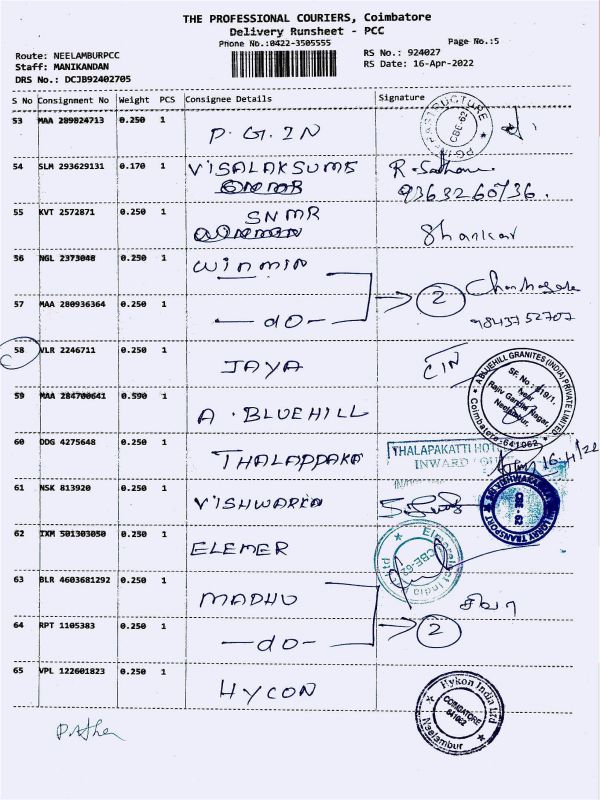 THE PROFESSIONAL COURIERS, Coimbatore
Delivery Runsheet - PCC
Phone No.:0422-3505555 Page No.:5
Route: NEELAMBURPCC RS No.: 924027
Staff: MANIKANDAN RS Date: 16-Apr-2022
DRS No.: DCJB92402705
S No Consignment No Weight PCS Consignee Details Signature
53 MAA 289824713 0.250 1
P.G.IN
CBE-62
54 SLM 293629131 0.170 1 VISALAKSUME R.
9363260736.
55 KVT 2572871 0.250 1 SNMR
Shankar
56 NGL 2373048 0.250 1 WINMIN
2
57 MAA 280936364 0.250 1 —do— 9843752707
58 VLR 2246711 0.250 1
JAYA CIN
ABLUEHILL GRANITES (INDIA) PRIVATE LIMITED
SF. No : 419/1,
Near
Rajiv Gandhi Nagar,
Neelambur,
Coimbatore-641062
59 MAA 284700641 0.590 1
A. BLUEHILL
60 DDG 4275648 0.250 1
THALAPPAKA THALAPAKATTI
INWARD
16.4/22
61 NSK 813920 0.250 1
VISHWARKA
LORRY TRANSPORT
62 IXM 501303050 0.250 1
ELEMER
India
CBE-62
63 BLR 4603681292 0.250 1
MADHU சிவா
64 RPT 1105383 0.250 1 2
—do—
65 VPL 122601823 0.250 1
HYCON
Hykon India Ltd
COIMBATORE
641062
Neelambur